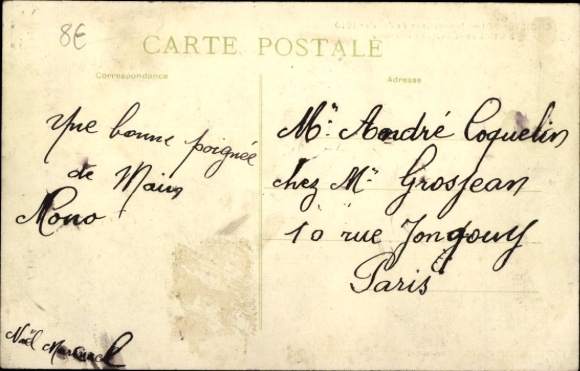 8€
CARTE POSTALE
Correspondance
Adresse
Une bonne poignée
de Main
Mono
Noël
Mr. André Coquelin
chez Mr Grosjean
10 rue
Paris